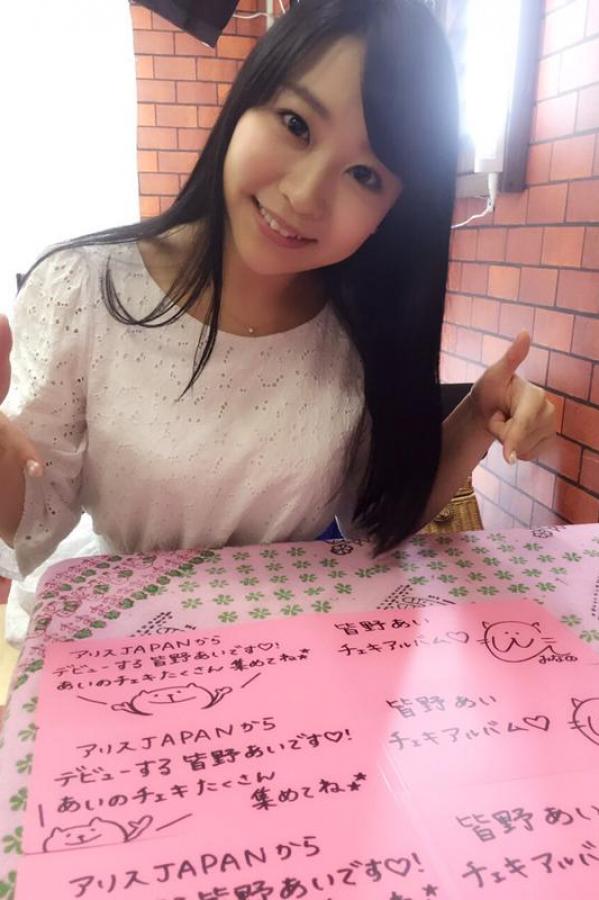 アリスJAPANから
デビューする 皆野あいです♡!
あいのチェキたくさん 集めてね★
皆野 あい
チェキアルバム♡
みなの
アリスJAPANから
デビューする 皆野あいです♡!
あいのチェキたくさん
集めてね★
皆野 あい
チェキアルバム♡
アリスJAPANから
皆野あいです♡!
皆野 あい
チェキアルバム